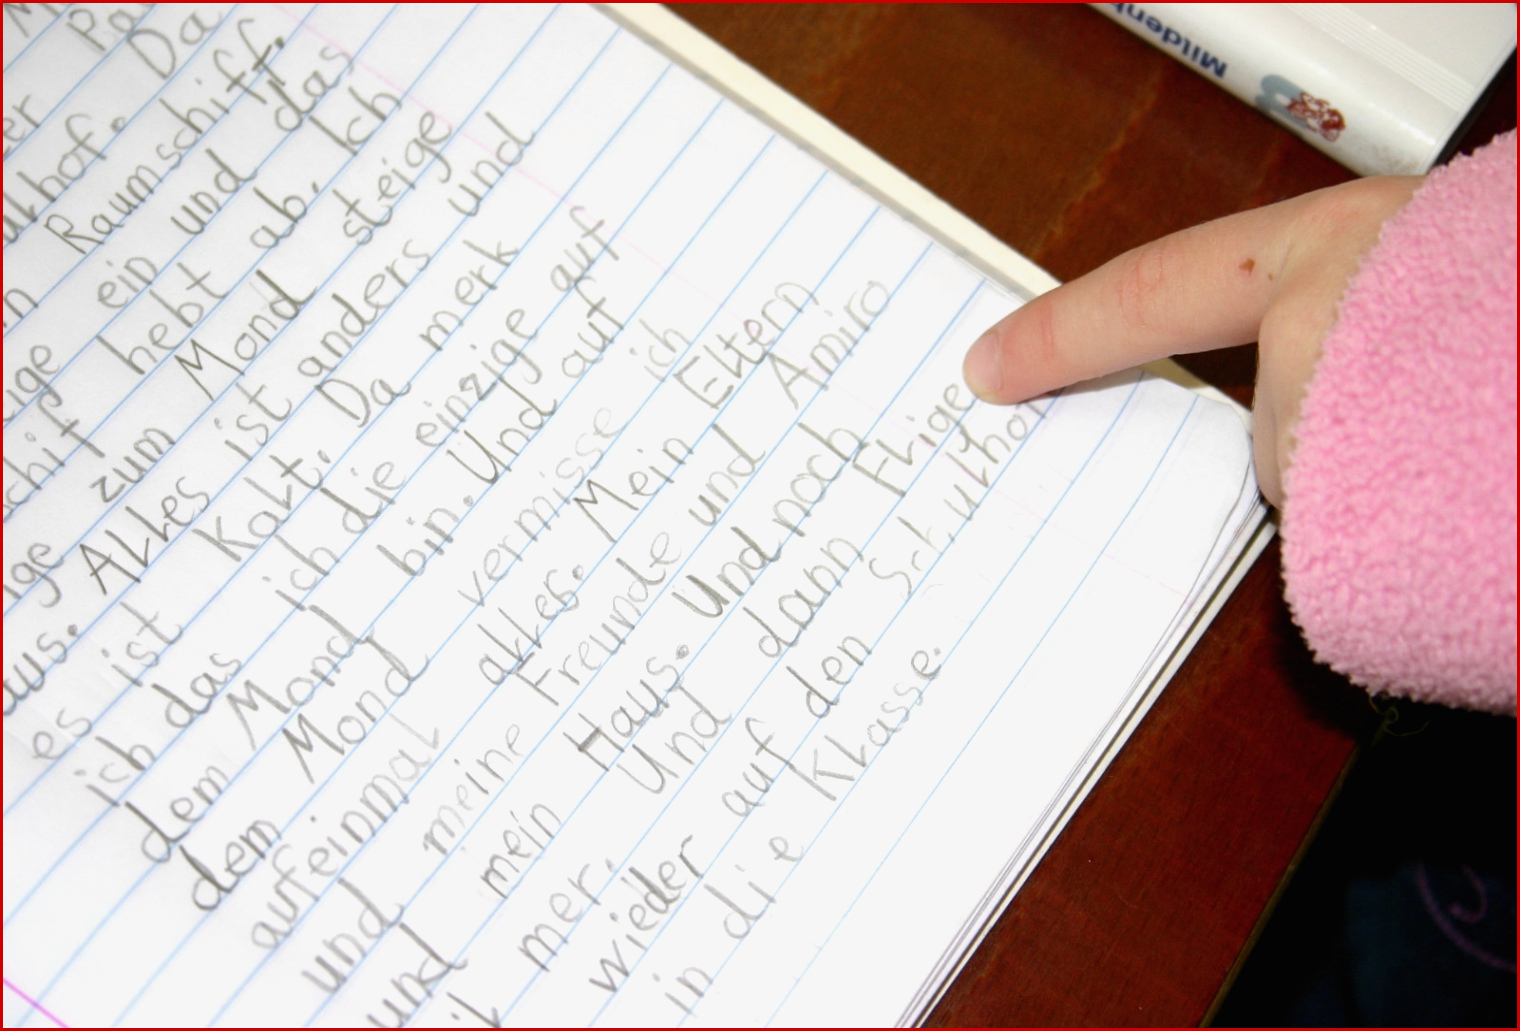 Da
Raumschiff.
ein und das
hebt ab. Ich
zum Mond steige
aus. Alles ist anders und
es ist Kalt. Da merk
ich das ich die einzige auf
dem Mond bin. Und auf
dem Mond vermisse ich
aufeinmal alles. Mein Eltern
und meine Freunde und Amiro
und mein Haus. Und noch
mer. Und dann Flige
wieder auf den Schulhof
in die Klasse.